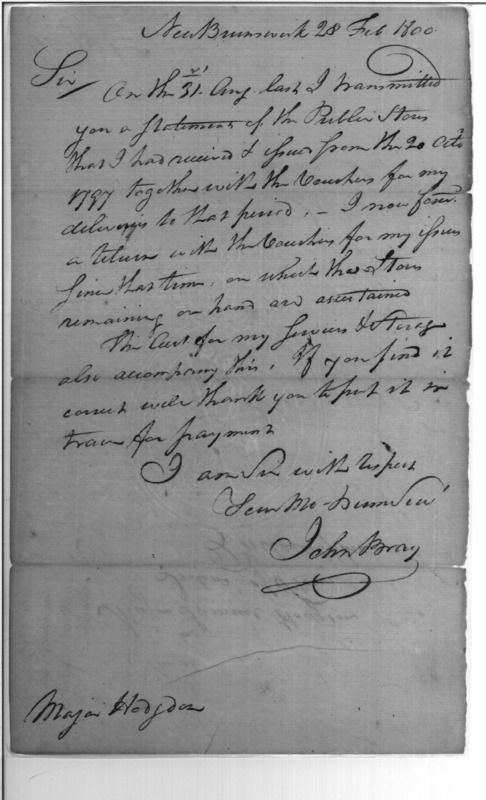 New Brunswick 28 Feb 1800
Sir
On the 31 Aug last I transmitted
you a Statement of the Public Stores
that I had received & issued from the 20 Octr
1797 together with the Vouchers for my
deliverys to that period, - I now forwd
a return with the Vouchers for my issues
since that time, on which the Stores
remaining on hand are ascertained
The Acct for my Services & Storage
also accompany this. If you find it
correct will thank you to put it in
train for payment
I am Sir with respect
Your Mo- Humb Servt
John Bray
Major Hodgdon